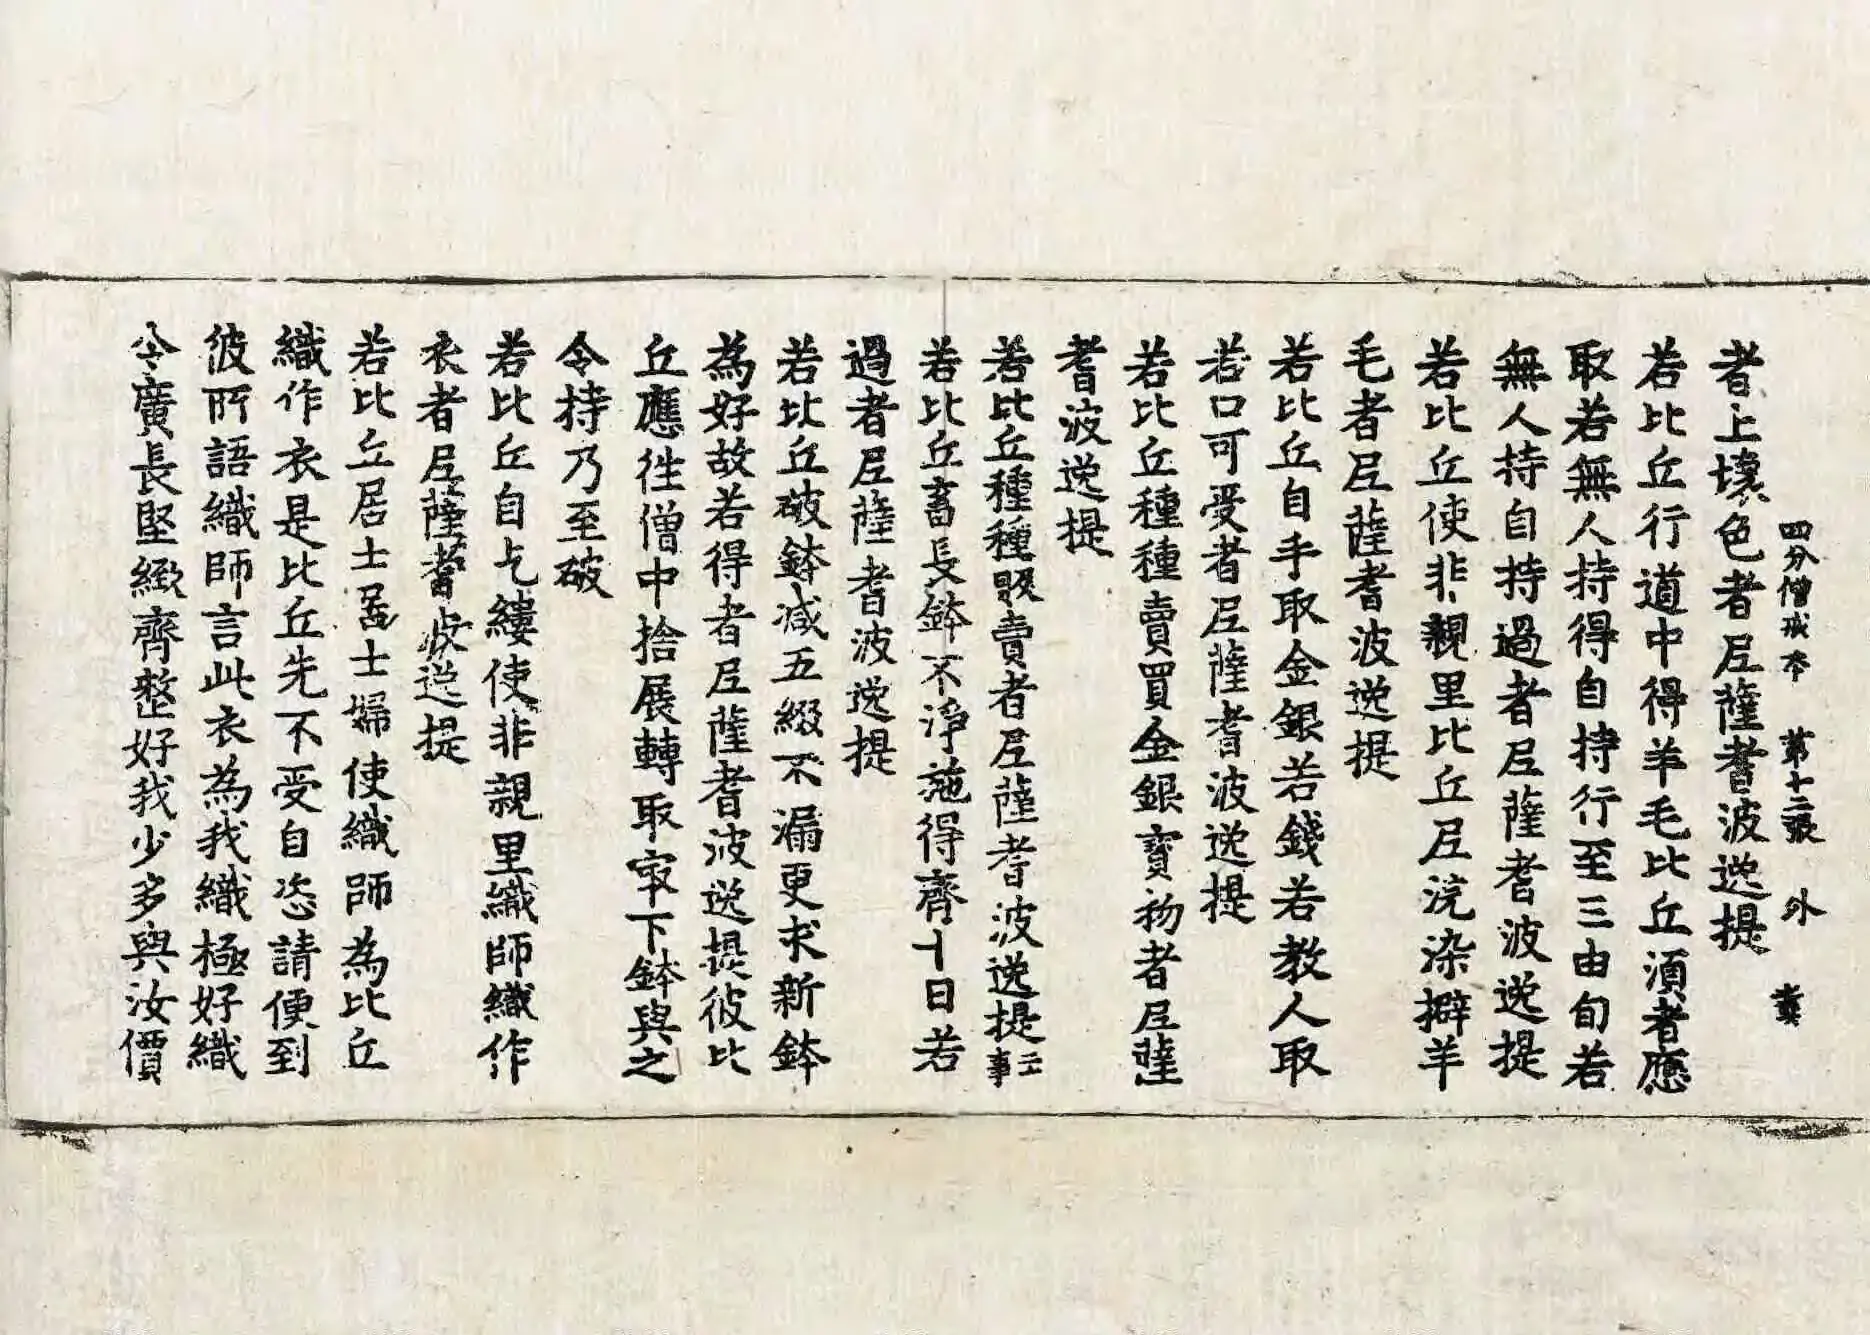 四分僧戒本 第十二張 外
者上壞色者尼薩耆波逸提
若比丘行道中得羊毛比丘須者應
取若無人持得自持行至三由旬若
無人持自持過者尼薩耆波逸提
若比丘使非親里比丘尼浣染擗羊
毛者尼薩耆波逸提
若比丘自手取金銀若錢若教人取
若口可受者尼薩耆波逸提
若比丘種種賣買金銀寶物者尼薩
耆波逸提
若比丘種種販賣者尼薩耆波逸提三事
若比丘畜長鉢不淨施得齊十日若
過者尼薩耆波逸提
若比丘破鉢减五綴不漏更求新鉢
為好故若得者尼薩耆波逸提彼比
丘應徃僧中捨展轉取㝡下鉢與之
令持乃至破
若比丘自乞縷使非親里織師織作
衣者尼薩耆波逸提
若比丘居士居士婦使織師為比丘
織作衣是比丘先不受自恣請便到
彼所語織師言此衣為我織極好織
令廣長堅緻齊整好我少多與汝價